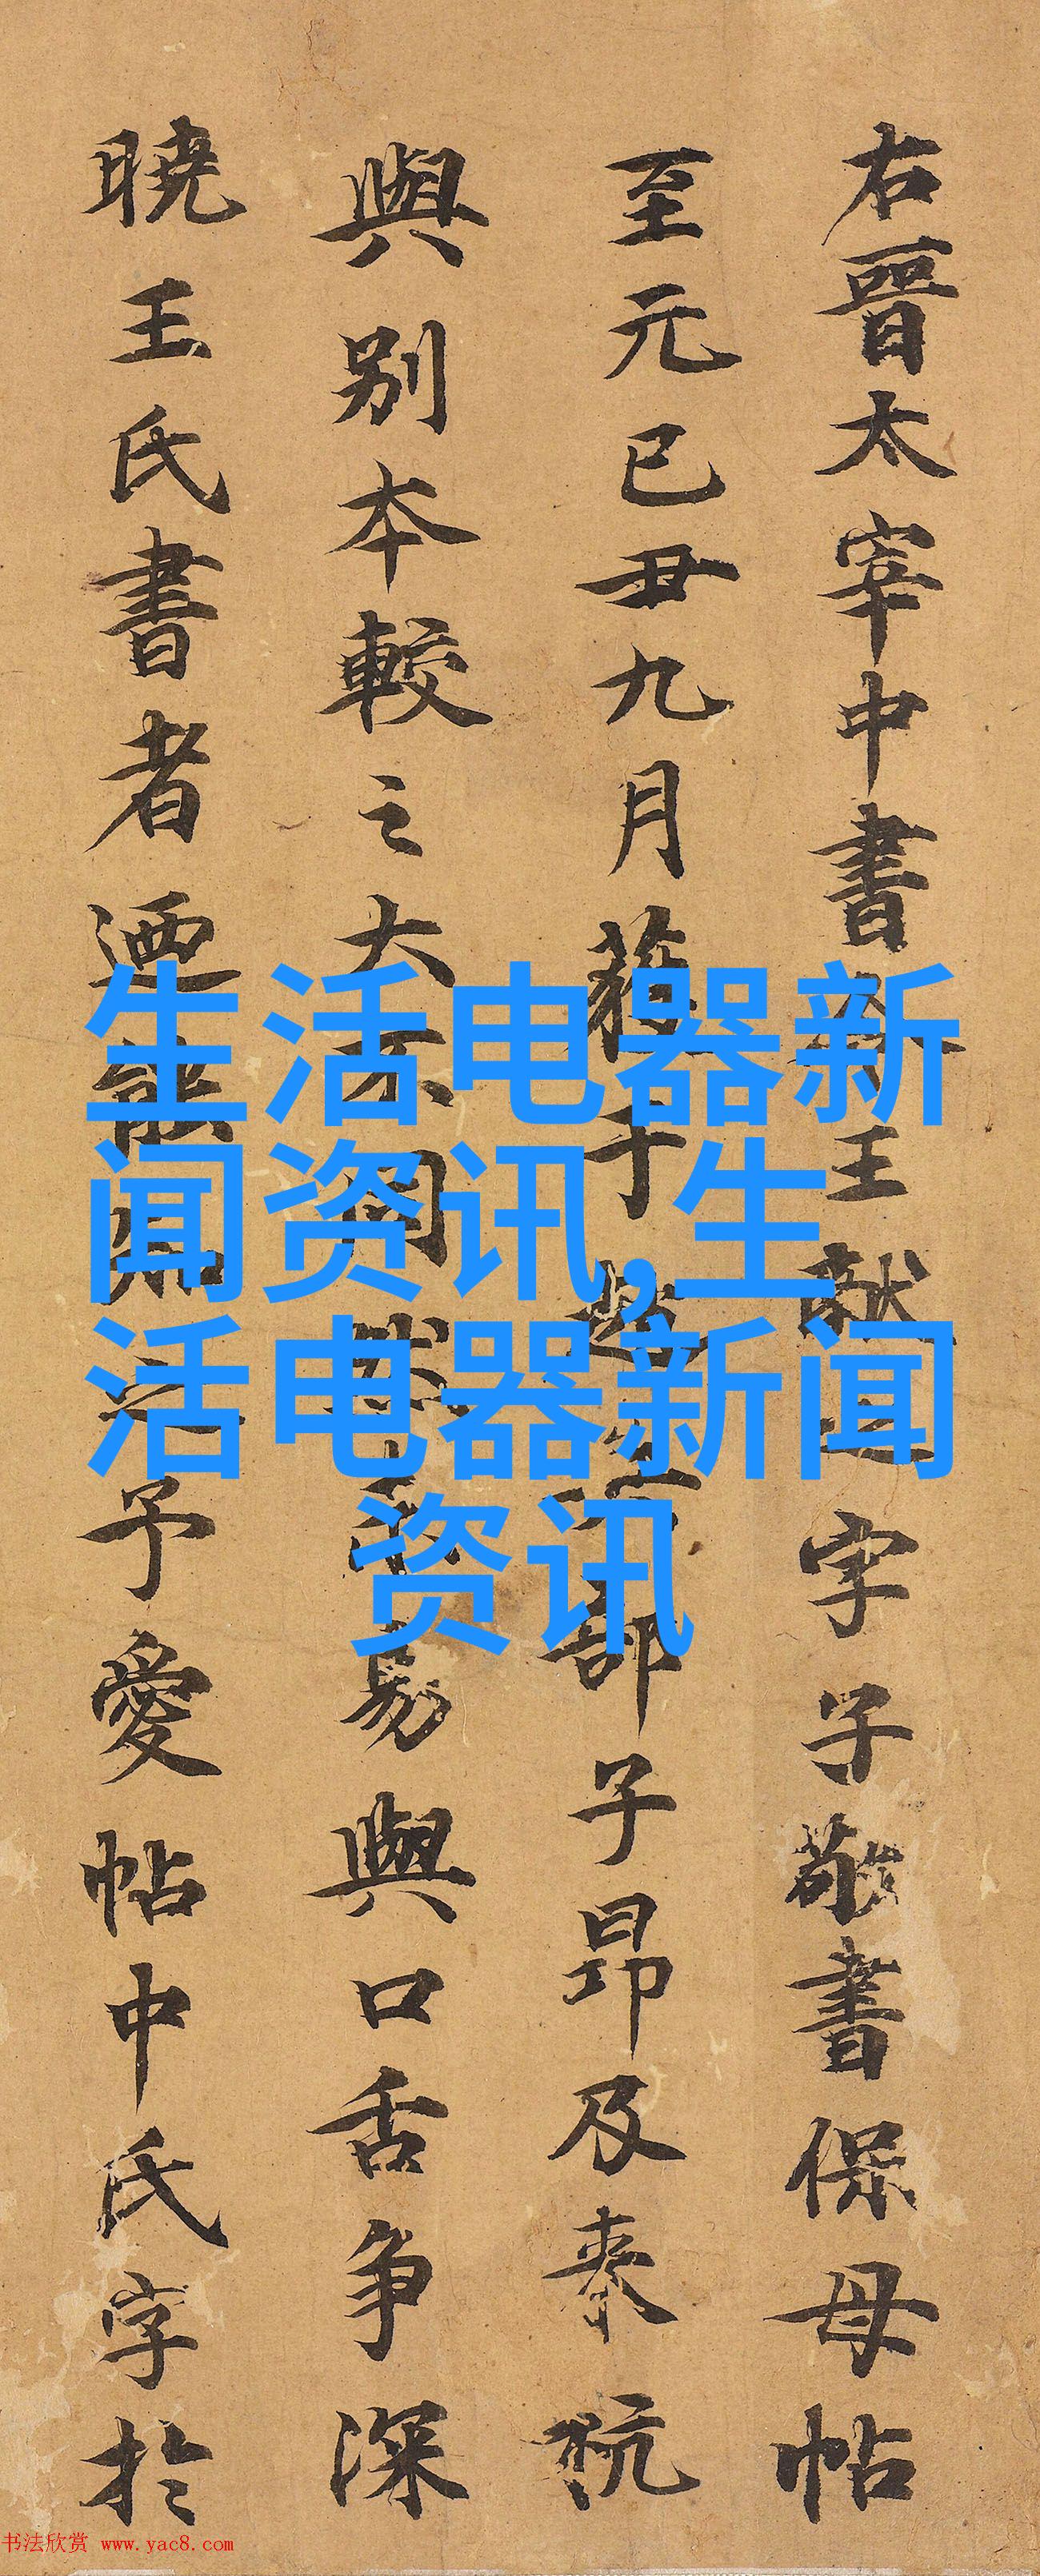 右晉太宰中書令王獻之字子敬書保母帖
至元已丑九月于趙部子昂及來杭
與别本較之大不同然未易與口舌爭深
曉王氏書者迺能知之予愛帖中氏字於
生活电器新
闻资讯,生
活电器新闻
资讯
书法欣赏 www.yac8.com